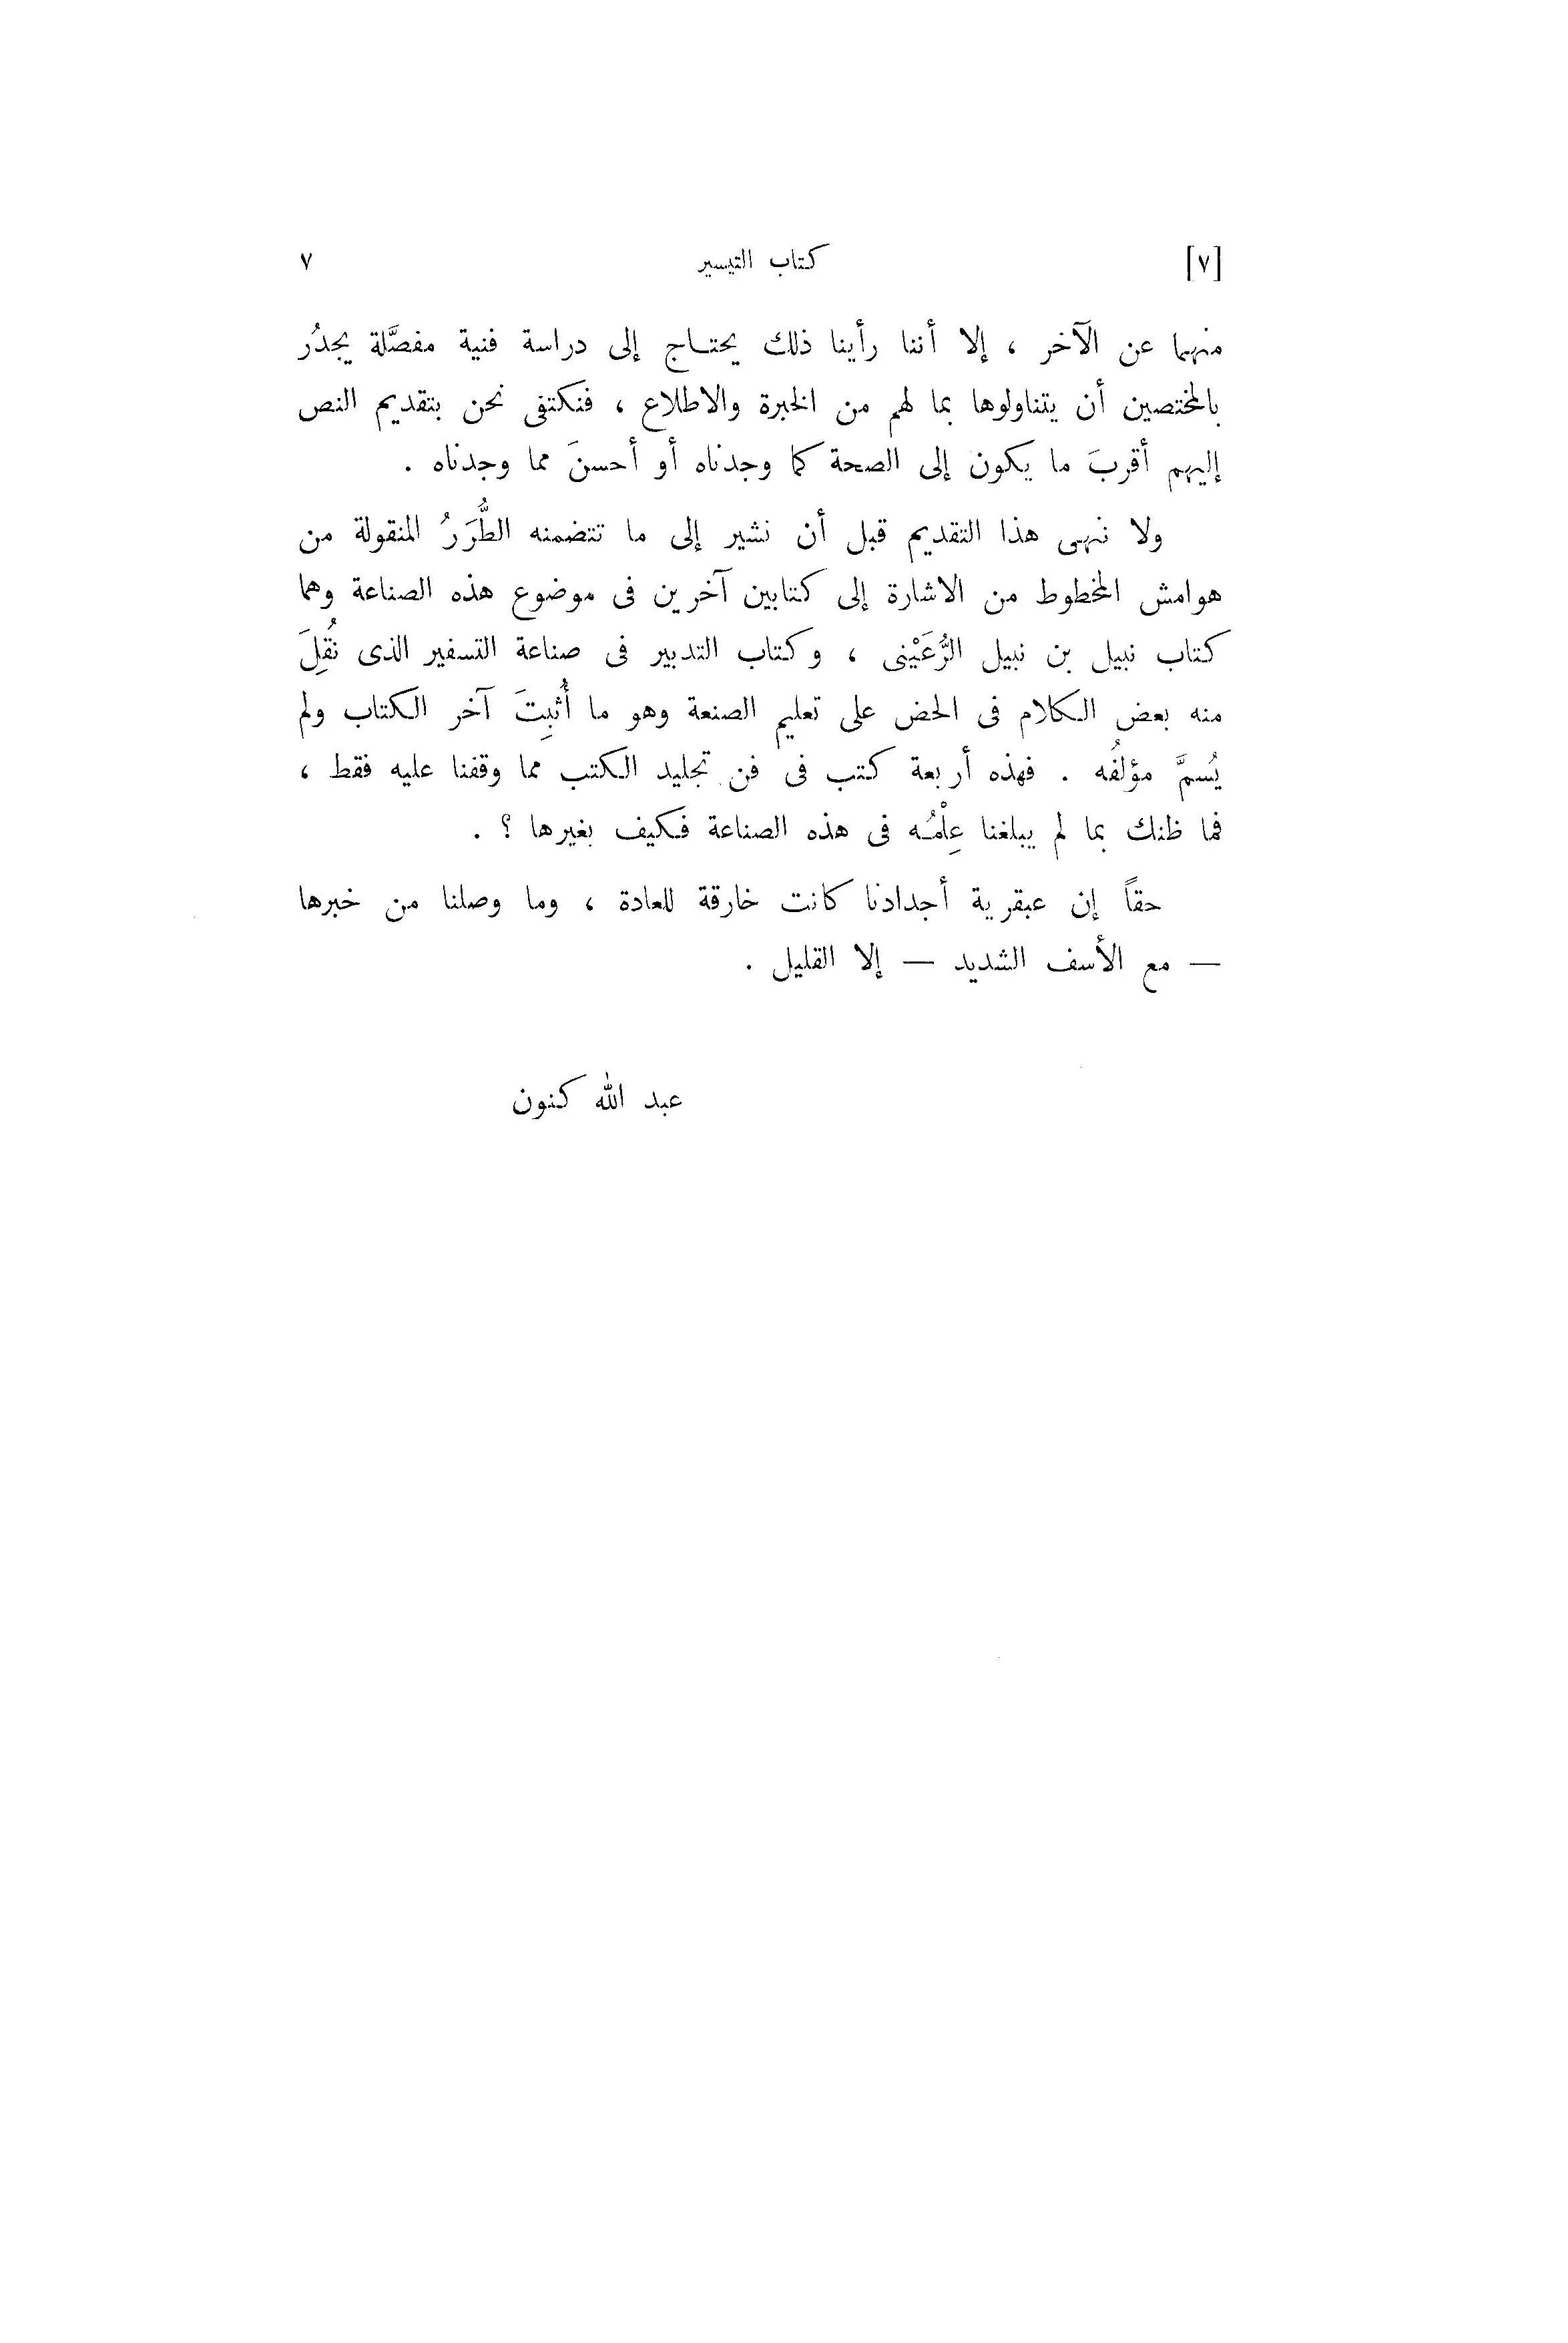 [٧] كتاب التيسير ٧
منهما عن الآخر ، إلا أننا رأينا ذلك يحتاج إلى دراسة فنية مفصَّلة يجدُر
بالمختصين أن يتناولوها بما لهم من الخبرة والاطلاع ، فنكتفى نحن بتقديم النص
إليهم أقربَ ما يكون إلى الصحة كما وجدناه أو أحسنَ مما وجدناه .
ولا ننهى هذا التقديم قبل أن نشير إلى ما تتضمنه الطُّرَرُ المنقولة من
هوامش المخطوط من الاشارة إلى كتابين آخرين فى موضوع هذه الصناعة وهما
كتاب نبيل بن نبيل الرُّعَيْنى ، وكتاب التدبير فى صناعة التسفير الذى نُقِلَ
منه بعض الكلام فى الحض على تعليم الصنعة وهو ما أُثبِتَ آخر الكتاب ولم
يُسمَّ مؤلفُه . فهذه أربعة كتب فى فن تجليد الكتب مما وقفنا عليه فقط ،
فما ظنك بما لم يبلغنا عِلْمُه فى هذه الصناعة فكيف بغيرها ؟ .
حقاً إن عبقرية أجدادنا كانت خارقة للعادة ، وما وصلنا من خبرها
— مع الأسف الشديد — إلا القليل .
عبد الله كنون